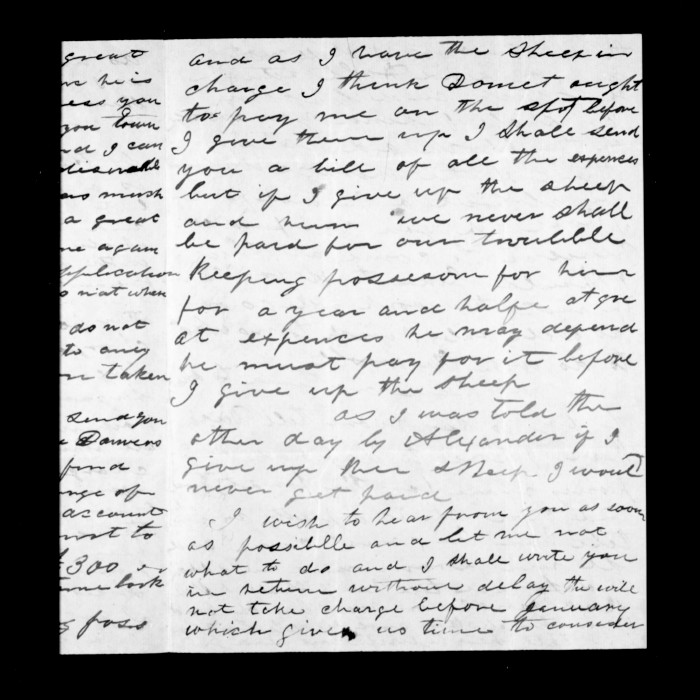 great
he is
ess you
you town
nd I can
desirable
as mush
a great
me again
application
o niat when
do not
to any
taken
send you
Danvers
find
nge of
account
not to
£300 or
time look
poss
and as I have the Sheep in
charge I think Domet ought
to pay me on the spot before
I give them up I Shall send
you a bill of all the expences
but if I give up the sheep
and run we never shall
be paid for our troubble
Keeping possesom for him
for a year and halfe at gre
at expences he may depend
he must pay for it before
I give up the sheep
as I was told the
other day by Alexander if I
give up ther sheep I woul
never get paid
I wish to hear from you as soon
as possiblle and let me not
what to do and I shall write you
in return without delay the will
not take charge before January
which gives us time to consider